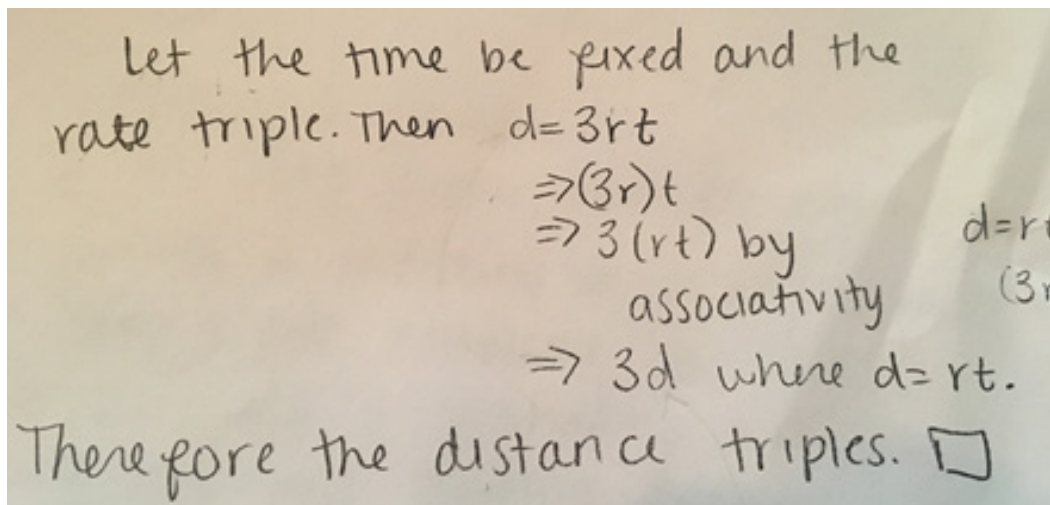 Let the time be fixed and the
rate triple. Then d=3rt
⇒(3r)t
⇒ 3(rt) by
associativity
d=r
(3
⇒ 3d where d=rt.
Therefore the distance triples. □